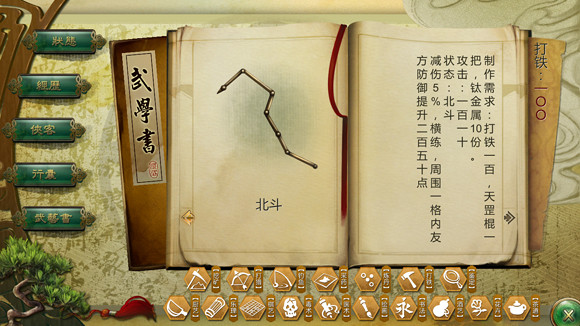 狀態
經歷
俠客
行囊
武藝書
武學書
北斗
打铁：一〇〇
制作需求：打铁一百，天罡棍一
把，钛金属10份。
攻击：一百一十
状态：北斗
减伤5%，横练，周围一格内友
方防御提升二百五十点